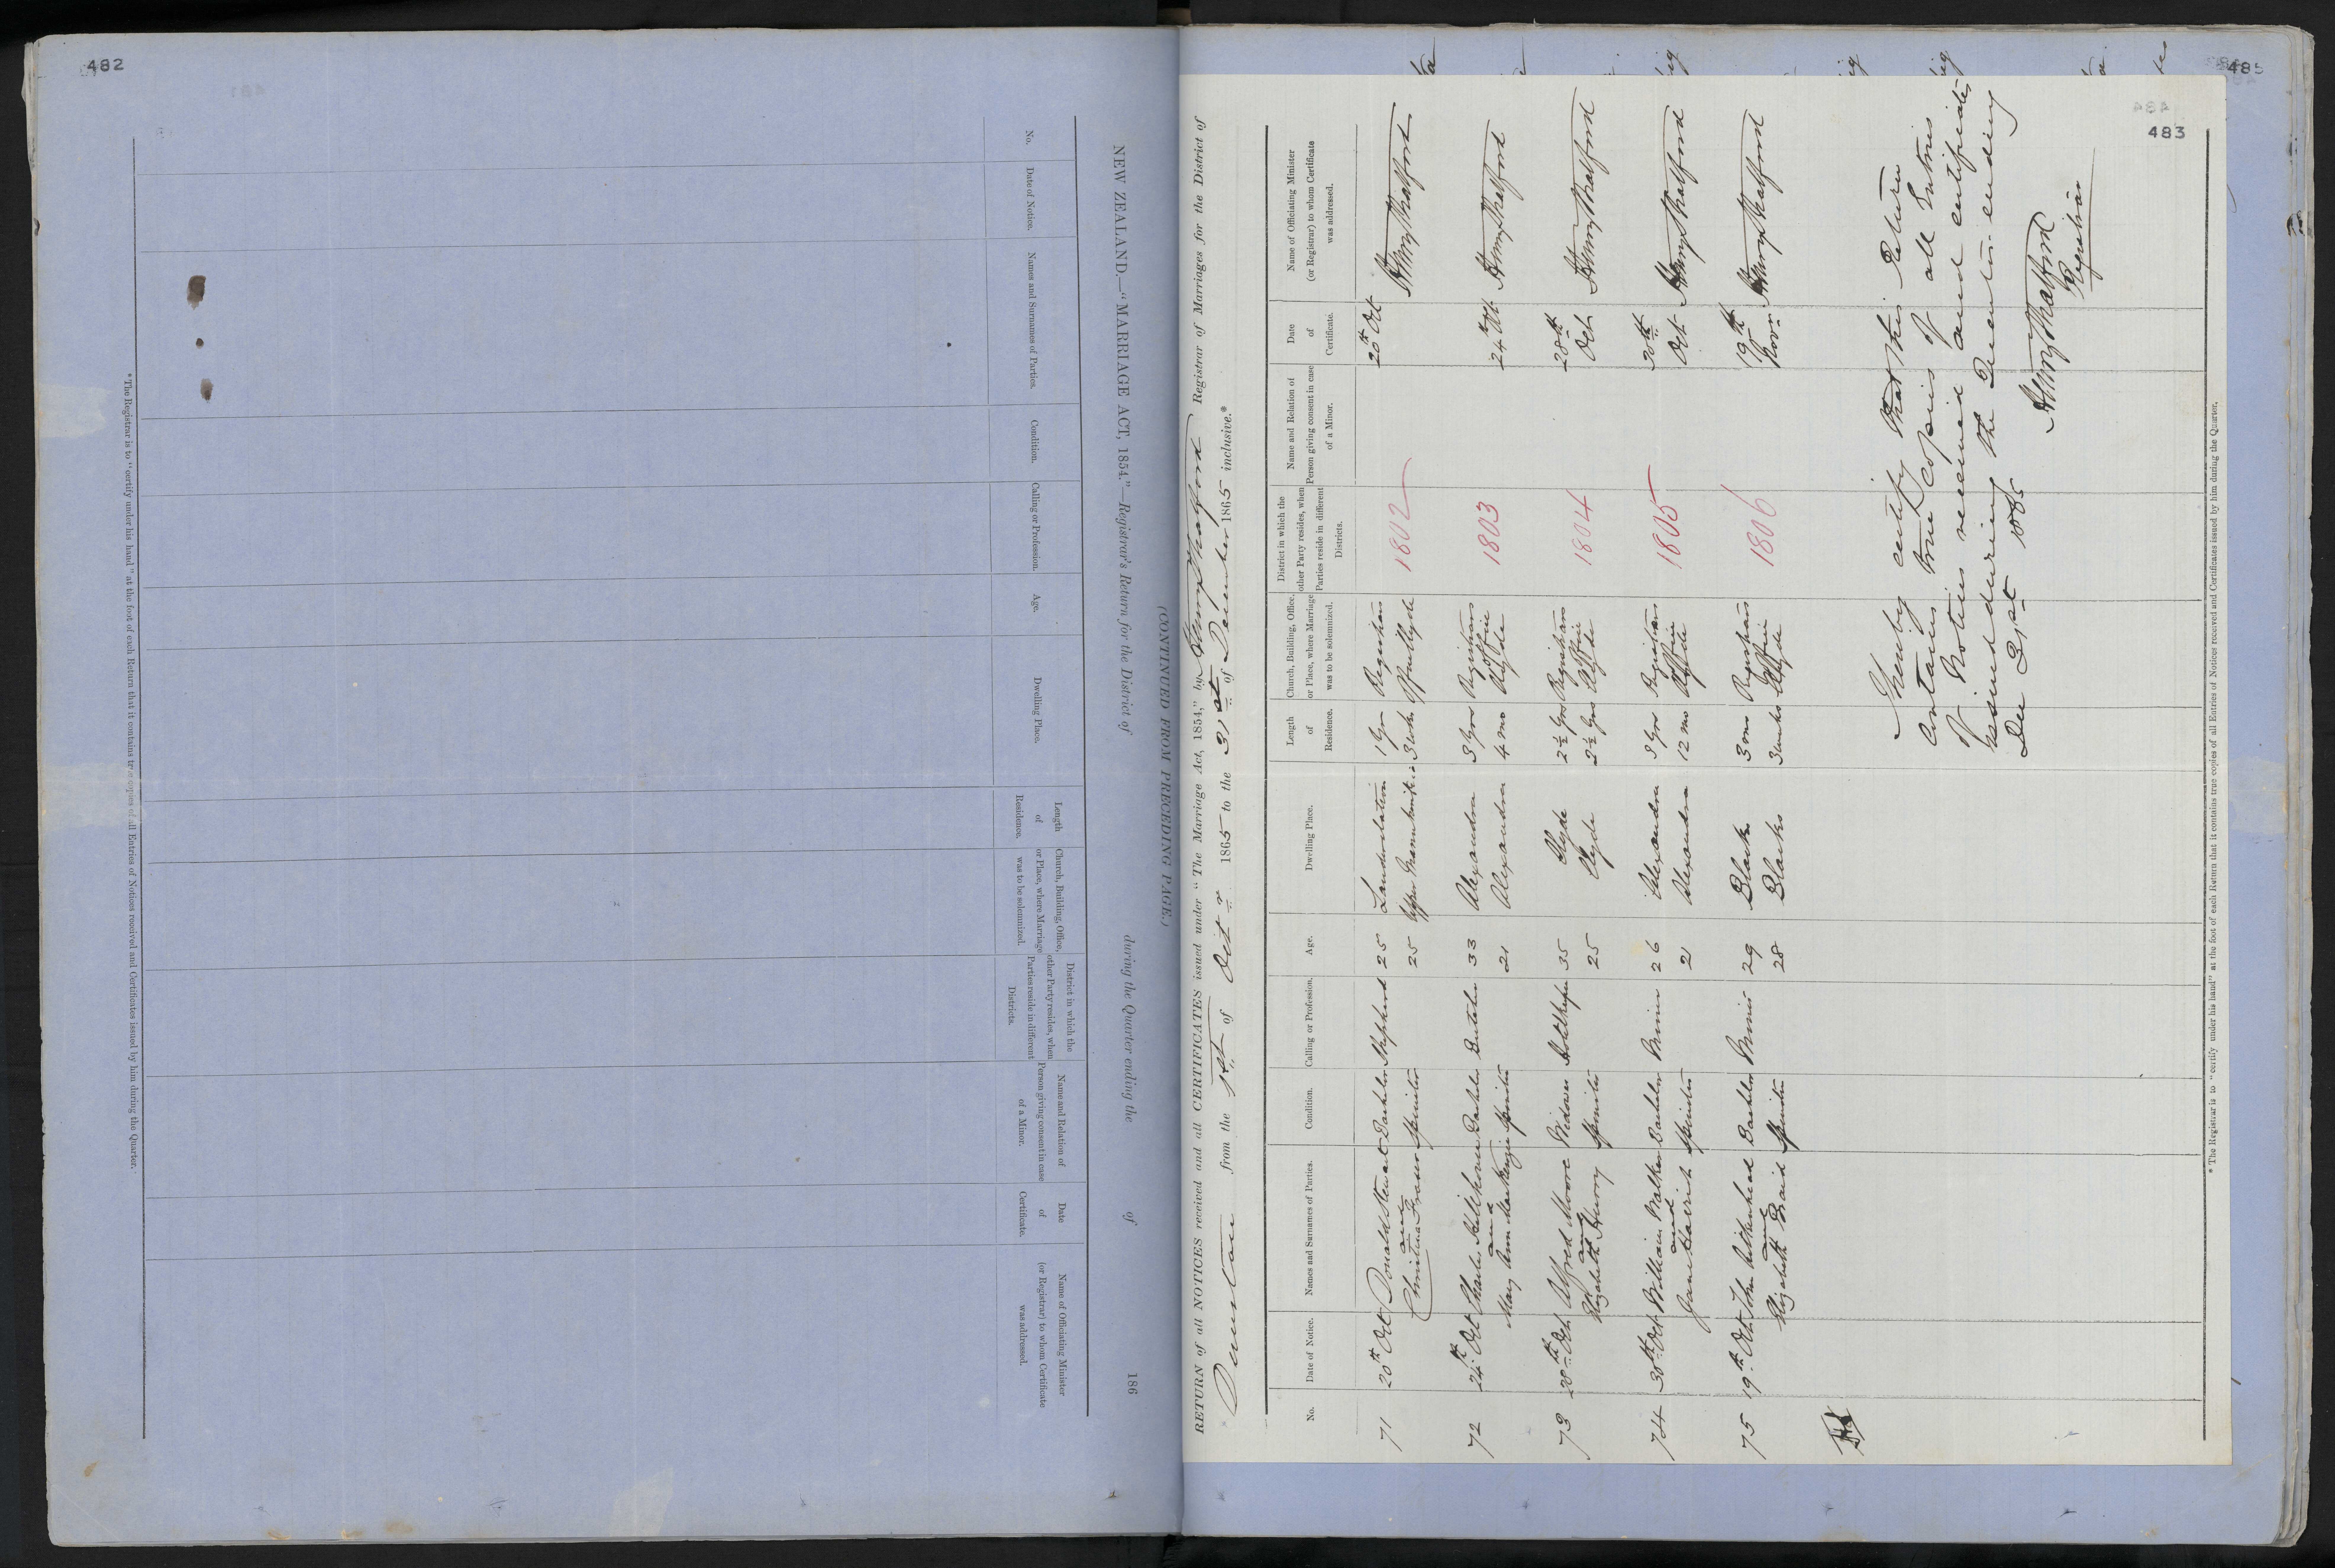 482
NEW ZEALAND.—"MARRIAGE ACT, 1854."—Registrar's Return for the District of during the Quarter ending the of 186
(CONTINUED FROM PRECEDING PAGE.)
No. Date of Notice. Names and Surnames of Parties. Condition. Calling or Profession. Age. Dwelling Place. Length of Residence. Church, Building, Office, or Place, where Marriage was to be solemnized. District in which the other Party resides, when Parties reside in different Districts. Name and Relation of Person giving consent in case of a Minor. Date of Certificate. Name of Officiating Minister (or Registrar) to whom Certificate was addressed.
* The Registrar is to "certify under his hand" at the foot of each Return that it contains true copies of all Entries of Notices received and Certificates issued by him during the Quarter.
485
483
RETURN of all NOTICES received and all CERTIFICATES issued under "The Marriage Act, 1854," by Henry Stratford Registrar of Marriages for the District of
Dunstan from the 1st of Octr 1865 to the 31st of December 1865 inclusive.*
No. Date of Notice. Names and Surnames of Parties. Condition. Calling or Profession. Age. Dwelling Place. Length of Residence. Church, Building, Office, or Place, where Marriage was to be solemnized. District in which the other Party resides, when Parties reside in different Districts. Name and Relation of Person giving consent in case of a Minor. Date of Certificate. Name of Officiating Minister (or Registrar) to whom Certificate was addressed.
71 20th Oct Donald Stewart Bachelor Shepherd 25 1 yr Registrars 20th Oct
and
Christina Fraser Spinster 25 Upper 3 wks Office Clyde 1802 Henry Stratford
72 24th Oct Charles Bachelor Butcher 33 Alexandra 3 yrs Registrars
and Office
Mary Ann MacKenzie Spinster 21 Alexandra 4 mo Clyde 1803 24th Oct Henry Stratford
73 28th Oct Alfred Moore Widower Hotelkeeper 35 Clyde 2½ yrs Registrars 28th
and Office
Elizabeth Spinster 25 Clyde 2½ yrs Clyde 1804 Oct Henry Stratford
74 30th Oct William Walker Bachelor Miner 26 Alexandra 3 yrs Registrars 30th
and Office
Jane Spinster 21 Alexandra 12 mo Clyde 1805 Oct Henry Stratford
75 19th Oct John Aitkenhead Bachelor Miner 29 Blacks 3 mo Registrars 19th
and Office
Elizabeth Baird Spinster 28 Blacks 3 weeks Clyde 1806 Novr Henry Stratford
HS
I hereby certify that this Return
contains true copies of all Entries
of Notices received and certificates
issued during the Quarter ending
Dec 31st 1865
Henry Stratford
Registrar
* The Registrar is to "certify under his hand" at the foot of each Return that it contains true copies of all Entries of Notices received and Certificates issued by him during the Quarter.